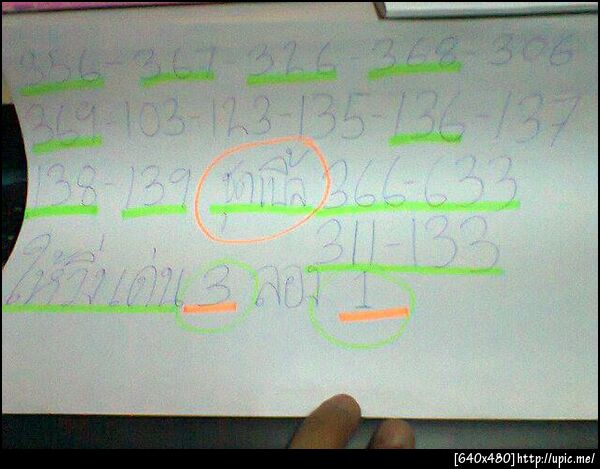 356-367-326-368-306
369-103-123-135-136-137
138-139 ชุดเบิ้ล 366-633
311-133
ให้วิ่งเด่น 3 ลอง 1
[640x480]http://upic.me/